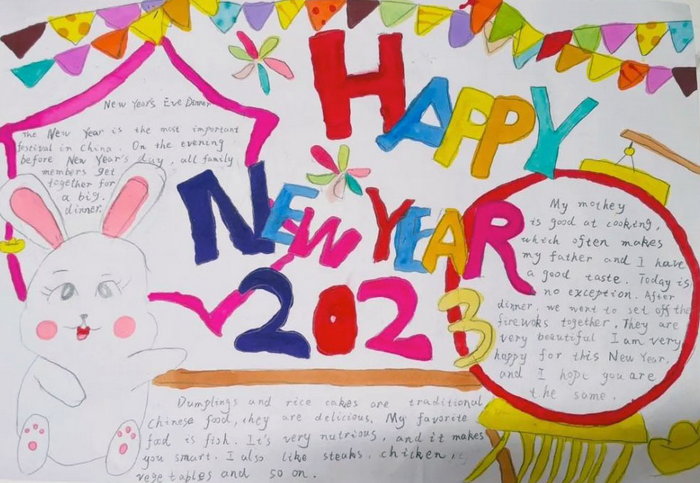 HAPPY
NEW YEAR
2023
New Year's Eve Dinner
The New Year is the most important
festival in China. On the evening
before New Year's day, all family
members get
together for
a big
dinner.
My mothey
is good at cooking,
which often makes
my father and I have
a good taste. Today is
no exception. After
dinner, we went to set off the
fireworks together. They are
very beautiful I am very
happy for this New Year,
and I hope you are
the same.
Dumplings and rice cakes are traditional
Chinese food, they are delicious. My favorite
food is fish. It's very nutrious, and it makes
you smart. I also like steaks, chicken
vegetables and so on.